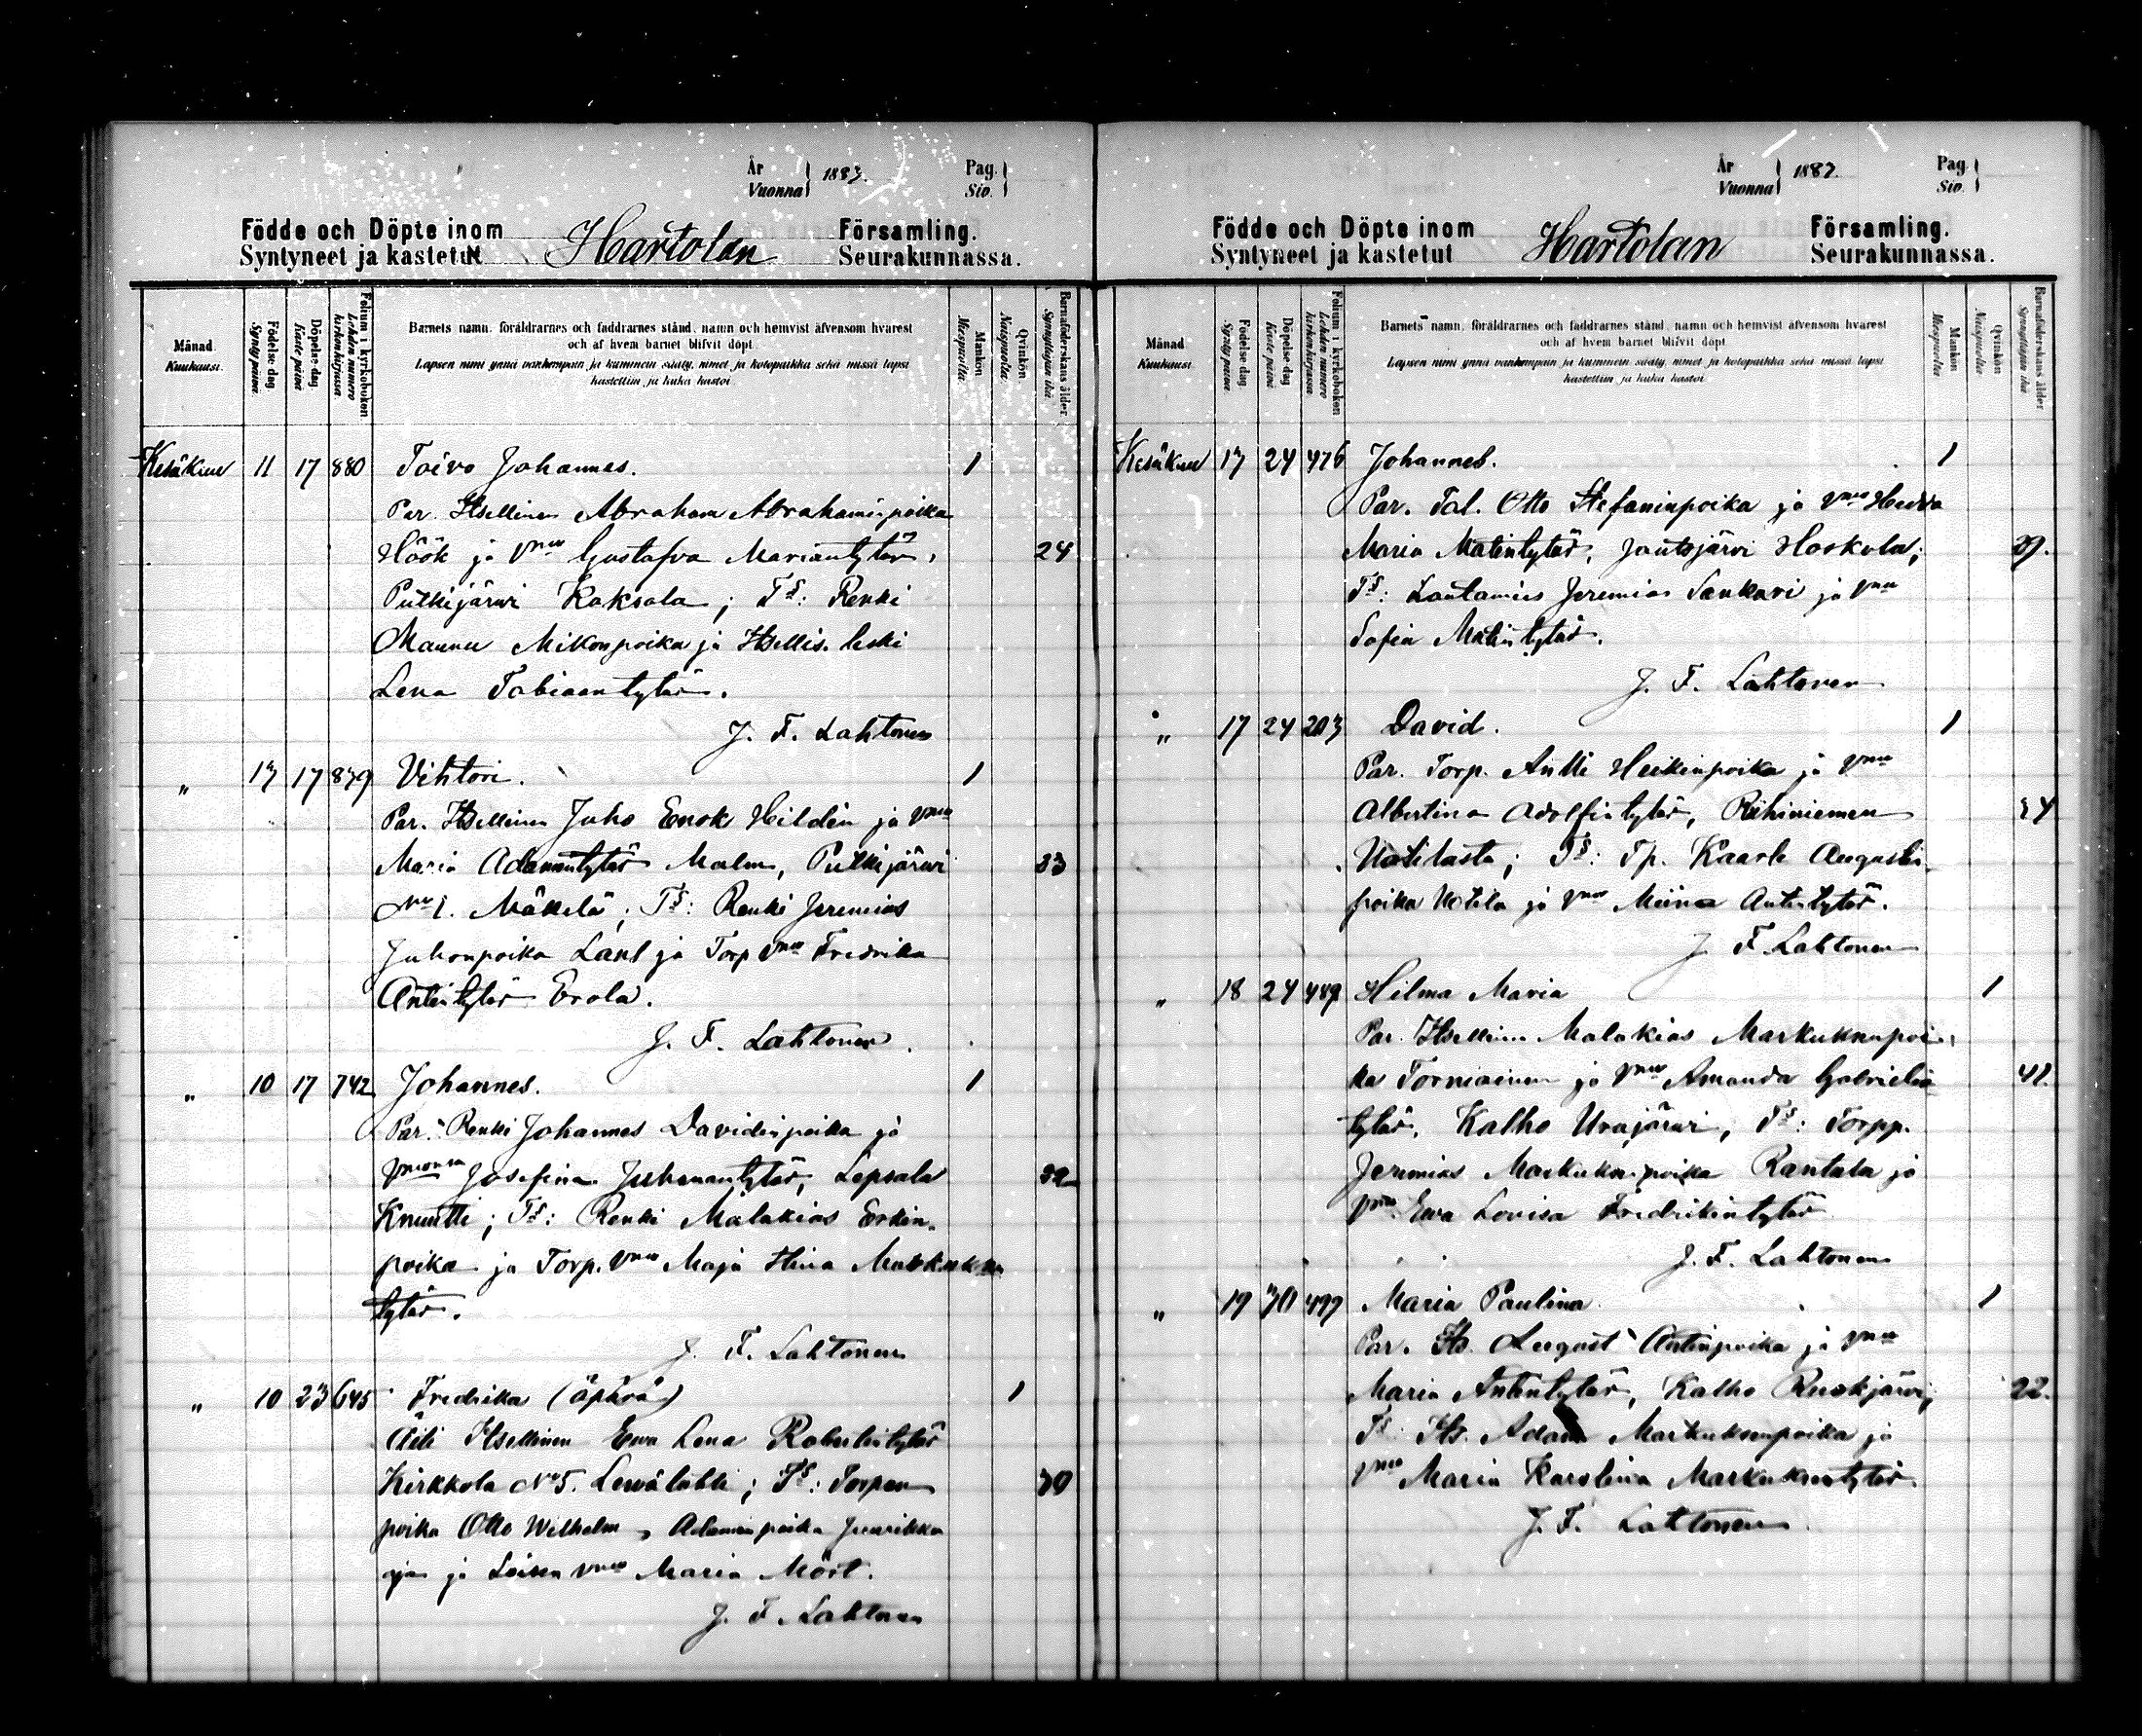 År
Vuonna } 1883.
Pag.
Siv. }
Födde och Döpte inom Hartolan Församling.
Syntyneet ja kastetut Seurakunnassa.
Månad Kuukausi.
Födelse dag Syntypäivä
Döpelse-dag Kastepäivä
Folium i kyrkoboken Lehden numero kirkonkirjassa
Barnets namn, föräldrarnes och faddrarnes stånd, namn och hemvist äfvensom hvarest
och af hvem barnet blifvit döpt.
Lapsen nimi ynnä vanhempain ja kummein sääty, nimet ja kotopaikka sekä missä lapsi
kastettiin ja kuka kastoi
Mankön Miespuolia
Qvinkön Naispuolia
Barnaföderskans ålder Synnyttäjän ikä
Kesäkuu 11 17 880 Toivo Johannes. 1
Par. Itsellinen Abraham Abrahaminpoika
Höök ja Vmo Gustafva Mariantytär, 24
Putkijärwi Koksala; Ts: Renki
Maunu Mikonpoika ja Itsellis. leski
Lena Tobiaantytär.
J. F. Lahtonen
" 13 17 879 Vihtori. 1
Par. Itsellinen Juho Enok Hildén ja Vmo
Maria Adamintytär Malm, Putkijärwi 33
No 1. Mäkelä; Ts: Renki Jeremias
Juhonpoika Lant ja Torp Vmo Fredrika
Antintytär Erola.
J. F. Lahtonen.
" 10 17 742 Johannes. 1
Par. Renki Johannes Davidinpoika ja
Vmonsa Josefina Juhanantytär, Lepsala 32
Knuutti; Ts: Renki Malakias Erkin-
poika ja Torp. Vmo Maja Stina Markukun
tytär.
J. F. Lahtonen
" 10 23 645 Fredrika (äpärä) 1
Äiti Itsellinen Ewa Lena Robertintytär
Kirkkola No 5. Lewälahti; Ts: Torpan
poika Otto Wilhelm Adaminpoika
ja Loisen Vmo Maria Mört.
J. F. Lahtonen
År
Vuonna } 1883.
Pag.
Siv. }
Födde och Döpte inom Hartolan Församling.
Syntyneet ja kastetut Seurakunnassa.
Månad Kuukausi
Födelse dag Syntypäivä
Döpelse-dag Kastepäivä
Folium i kyrkoboken Lehden numero kirkonkirjassa
Barnets namn, föräldrarnes och faddrarnes stånd, namn och hemvist äfvensom hvarest
och af hvem barnet blifvit döpt
Lapsen nimi ynnä vanhempain ja kummein sääty, nimet ja kotopaikka sekä missä lapsi
kastettiin ja kuka kastoi
Mankön Miespuolia
Qvinkön Naispuolia
Barnaföderskans ålder Synnyttäjän ikä
Kesäkuu 13 24 476 Johannes. 1
Par. Tal. Otto Stefaninpoika ja Vmo Hedda
Maria Matintytär, Jautsjärvi Hoskola; 39.
Ts: Lautamies Jeremias Sankari ja Vmo
Sofia Matintytär.
J. F. Lahtonen
" 17 24 203 David. 1
Par. Torp. Antti Heikinpoika ja Vmo
Albertina Adolfintytär, Riihiniemen 24
Uotilasta; Ts: Tp. Kaarle Augustin-
poika Uotila ja Vmo Miina Antintytär.
J. F. Lahtonen
" 18 24 489 Hilma Maria 1
Par. Itsellinen Malakias Markukunpoi-
ka Torniainen ja Vmo Amanda Gabrielin 42
tytär, Kalho Urajärwi, Ts: Torpp.
Jeremias Markukunpoika Rantala ja
Vmo Ewa Lovisa Fredrikintytär
J. F. Lahtonen
" 19 30 499 Maria Paulina 1
Par. Its. August Antinpoika ja Vmo
Maria Antintytär, Kalho Ruokjärvi, 22.
Ts Its. Adam Markukunpoika ja
Vmo Maria Karolina Markukuntytär.
J. F. Lahtonen